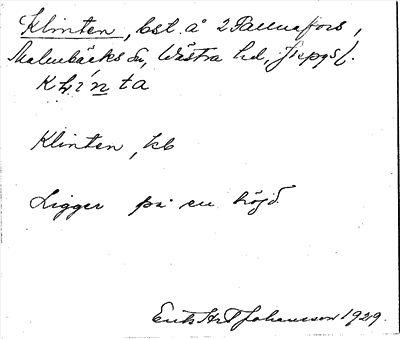 Klinten, bst. å 2 Tallnafors,
Malmbäcks sn, Västra hd, Jkpgs l.
Klinta
Klinten, kb
Ligger på en höjd
Johansson 1929.